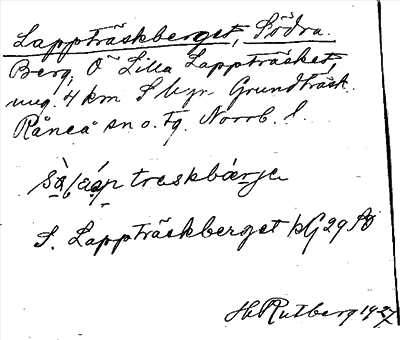 Lappträskberget, Södra.
Berg, O Lilla Lappträsket,
ung. 4 km S byn Grundträsk.
Råneå sn o. tg. Norrb. l.
träskbärje
S. Lappträskberget bG 29 SO
H. Rutberg 1927